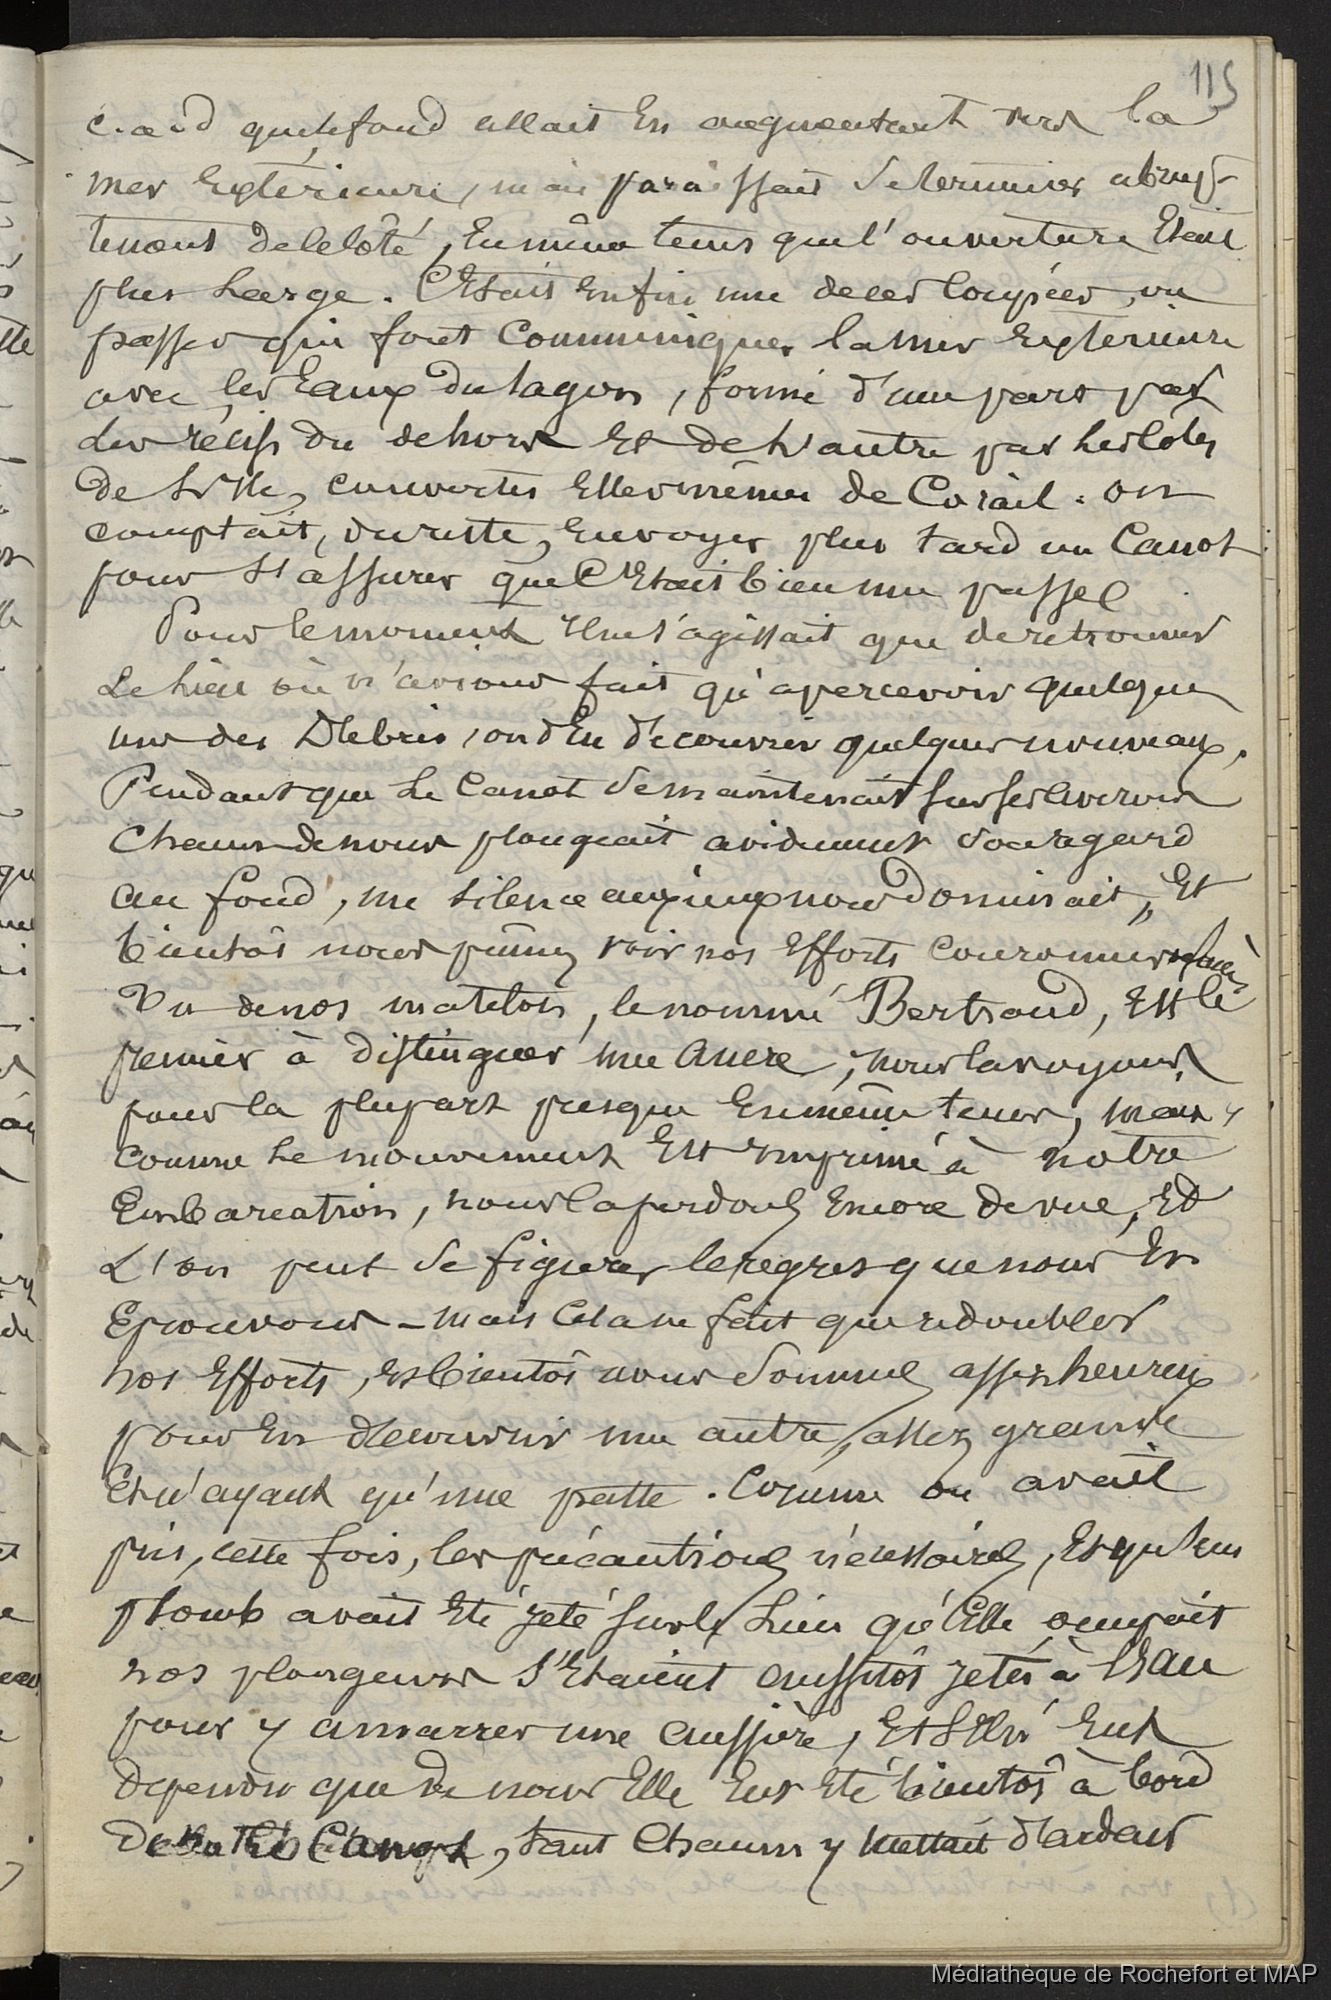 115
c.a.d que le fond allait En augmentant vers la
mer Extérieure, mais paraissait se terminer abrup-
tement de le côté, En même tems que l'ouverture Etait
plus Large. C'Etait Enfin une de ces Coupées, ou
passes qui font Communiquer la Mer Extérieure
avec les Eaux du Lagon, formé d'une part par
Les récifs du dehors Et de L'autre par Les Côtes
de L'Ile, couvertes Elles mêmes de Corail. on
comptait, du reste, Envoyer plus tard un Canot
pour S'assurer que C'Etait bien une passe
Pour le moment Il ne s'agissait que de retrouver
Le Lieu où n'avions fait qu'apercevoir quelques
uns des Débris, ou d'En découvrir quelques nouveaux.
Pendant que Le Canot se maintenait sur ses avirons
Chacun de nous plongeait avidement son regard
au fond, un silence anxieux nous dominait, Et
bientôt nous pûmes voir nos Efforts couronnés de succès
Un de nos matelots, le nommé Bertrand, Est le
premier à distinguer une Ancre; nous la voyons,
pour la plupart presque En même tems, mais
comme Le mouvement Est Imprimé à notre
Embarcation, nous la perdons Encore de vue, Et
L'on peut se figurer le regret que nous En
Eprouvons - mais Cela ne fait que redoubler
nos Efforts, Et bientôt nous sommes assez heureux
pour En découvrir une autre, assez grande
Et n'ayant qu'une patte. Comme on avait
pris, cette fois, les précautions nécessaires, Et qu'un
plomb avait Eté jeté sur le Lieu qu'Elle occupait
nos plongeurs S'Etaient aussitôt jetés à L'Eau
pour y amarrer une aussière, Et S'Il n'Eut
dépendu que de nous Elle Eut Eté bientôt à bord
de notre Canot, tant Chacun y mettait d'ardeur
Médiathèque de Rochefort et MAP